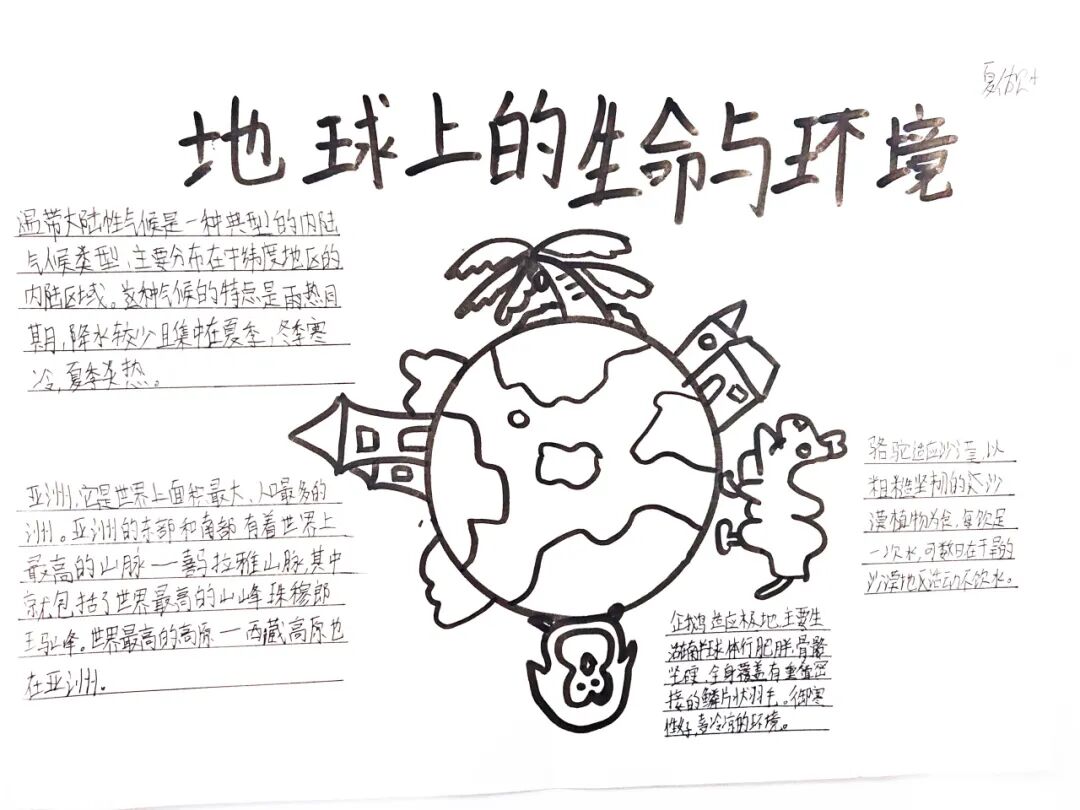 地球上的生命与环境
温带大陆性气候是一种典型的内陆
气候类型,主要分布在中纬度地区的
内陆区域。这种气候的特点是雨热同
期,降水较少且集中在夏季,冬季寒
冷,夏季炎热。
亚洲,它是世界上面积最大、人口最多的
洲。亚洲的东部和南部有着世界上
最高的山脉一喜马拉雅山脉,其中
就包括了世界最高的山峰珠穆郎
玛峰。世界最高的高原一西藏高原也
在亚洲。
骆驼适应沙漠,以
粗糙坚韧的沙
漠植物为食,每饮足
一次水,可数日在干旱的
沙漠地区活动不饮水。
企鹅适应极地,主要生
活南半球,体行肥胖,骨骼
坚硬,全身覆盖有重叠密
接的鳞片状羽毛。御寒
性好,喜冷凉的环境。